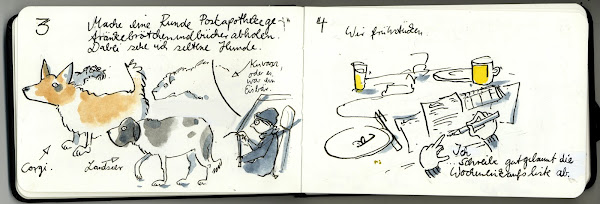 3
Mache eine Runde Postapothekege-
tränkebrötchenundbücherabholen.
Dabei sehe ich seltene Hunde.
Kuvasz,
oder es
war ein
Eisbär.
Corgi.
Landseer
4
Wir frühstücken.
Ich
schreibe gutgelaunt die
Wocheneinkaufsliste ab.